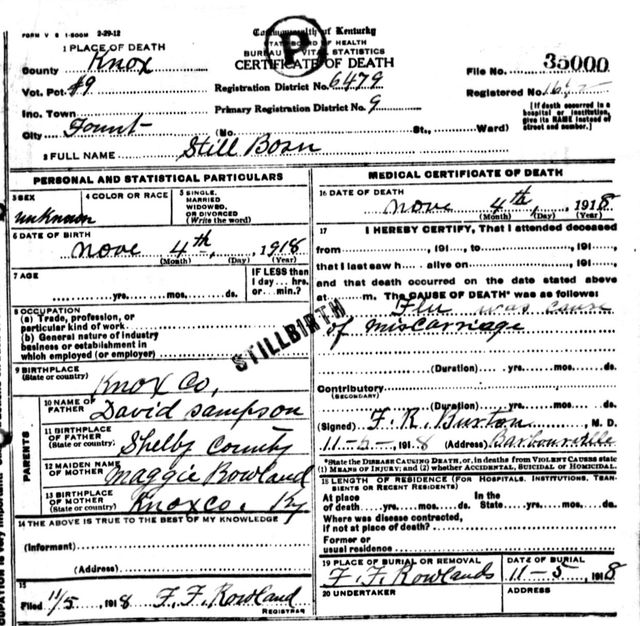 FORM V S 1-500M 2-29-12
Commonwealth of Kentucky
STATE BOARD OF HEALTH
BUREAU VITAL STATISTICS
CERTIFICATE OF DEATH
P
1 PLACE OF DEATH
County Knox
Vot. Pct. #9
Inc. Town
City Fount (No. St., Ward)
Registration District No. 6479
Primary Registration District No. 9
File No. 35000
Registered No.
[If death occurred in a hospital or institution, give its NAME instead of street and number.]
2 FULL NAME Still Born
PERSONAL AND STATISTICAL PARTICULARS
3 SEX unknown
4 COLOR OR RACE
5 SINGLE, MARRIED WIDOWED, OR DIVORCED (Write the word)
6 DATE OF BIRTH
Nove 4th, 1918
(Month) (Day) (Year)
7 AGE
yrs. mos. ds.
IF LESS than 1 day... hrs. or ... min.?
8 OCCUPATION
(a) Trade, profession, or particular kind of work
(b) General nature of industry business or establishment in which employed (or employer)
STILLBIRTH
9 BIRTHPLACE (State or country) Knox Co,
PARENTS
10 NAME OF FATHER David Sampson
11 BIRTHPLACE OF FATHER (State or country) Shelby County
12 MAIDEN NAME OF MOTHER Maggie Rowland
13 BIRTHPLACE OF MOTHER (State or country) Knox co. Ky
14 THE ABOVE IS TRUE TO THE BEST OF MY KNOWLEDGE
(Informant)
(Address)
15
Filed 11/5, 1918 F. F. Rowland
REGISTRAR
MEDICAL CERTIFICATE OF DEATH
16 DATE OF DEATH
Nove 4th, 1918
(Month) (Day) (Year)
17 I HEREBY CERTIFY, That I attended deceased
from , 191 , to , 191 ,
that I last saw h alive on , 191 ,
and that death occurred on the date stated above
at m. The CAUSE OF DEATH* was as follows:
Flu was cause
of miscarriage
(Duration) yrs. mos. ds.
Contributory
(SECONDARY)
(Duration) yrs. mos. ds.
(Signed) F. R. Burton, M. D.
11-5-, 1918 (Address) Barbourville
*State the DISEASE CAUSING DEATH, or, in deaths from VIOLENT CAUSES state (1) MEANS OF INJURY; and (2) whether ACCIDENTAL, SUICIDAL or HOMICIDAL.
18 LENGTH OF RESIDENCE (FOR HOSPITALS, INSTITUTIONS, TRANSIENTS OR RECENT RESIDENTS)
At place of death yrs. mos. ds. In the State yrs. mos. ds.
Where was disease contracted, if not at place of death?
Former or usual residence
19 PLACE OF BURIAL OR REMOVAL
F. F. Rowlands
DATE OF BURIAL
11-5 1918
20 UNDERTAKER
ADDRESS